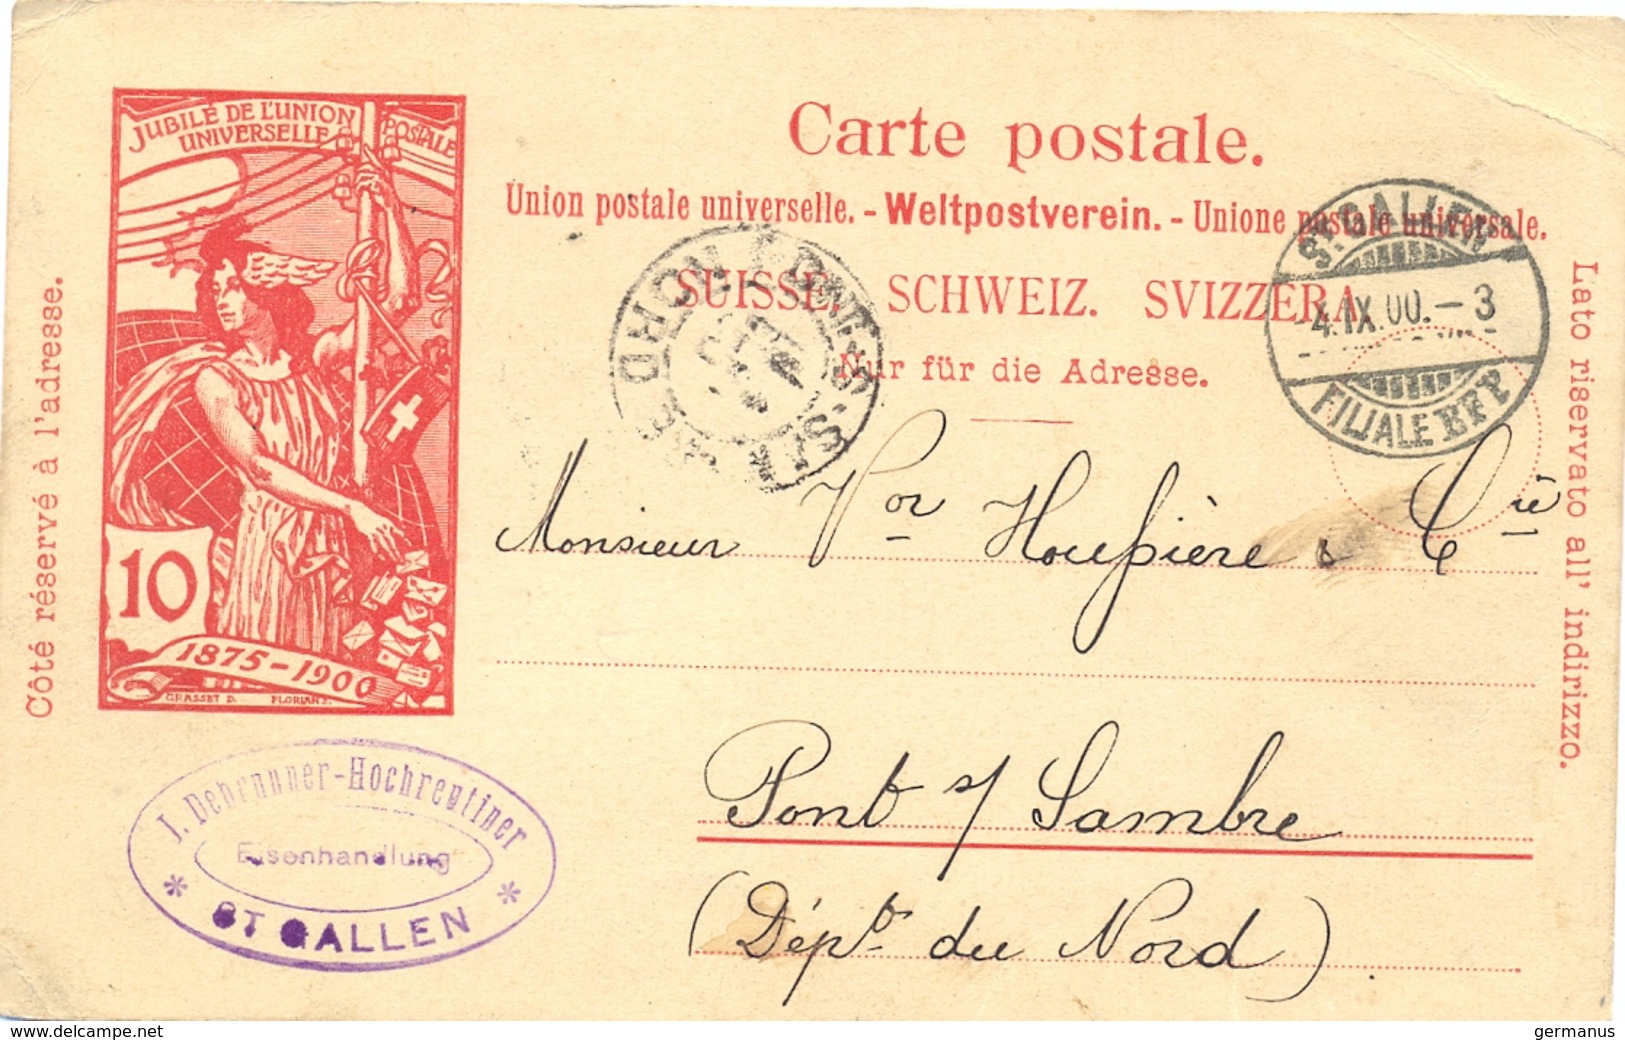 JUBILÉ DE L'UNION
POSTALE
UNIVERSELLE
10
1875-1900
GRASSET D. FLORIAN S.
Carte postale.
Union postale universelle. - Weltpostverein. - Unione postale universale.
SUISSE. SCHWEIZ. SVIZZERA.
Nur für die Adresse.
Côté réservé à l'adresse.
Lato riservato all' indirizzo.
ST. GALLEN
4.IX.00.-3
FILIALE BFP.
NORD
Monsieur Vor Houssière & Cie
Pont s/ Sambre
(Dépt. du Nord).
J. Debrunner-Hochreutiner
Eisenhandlung
* ST GALLEN *
www.delcampe.net
germanus